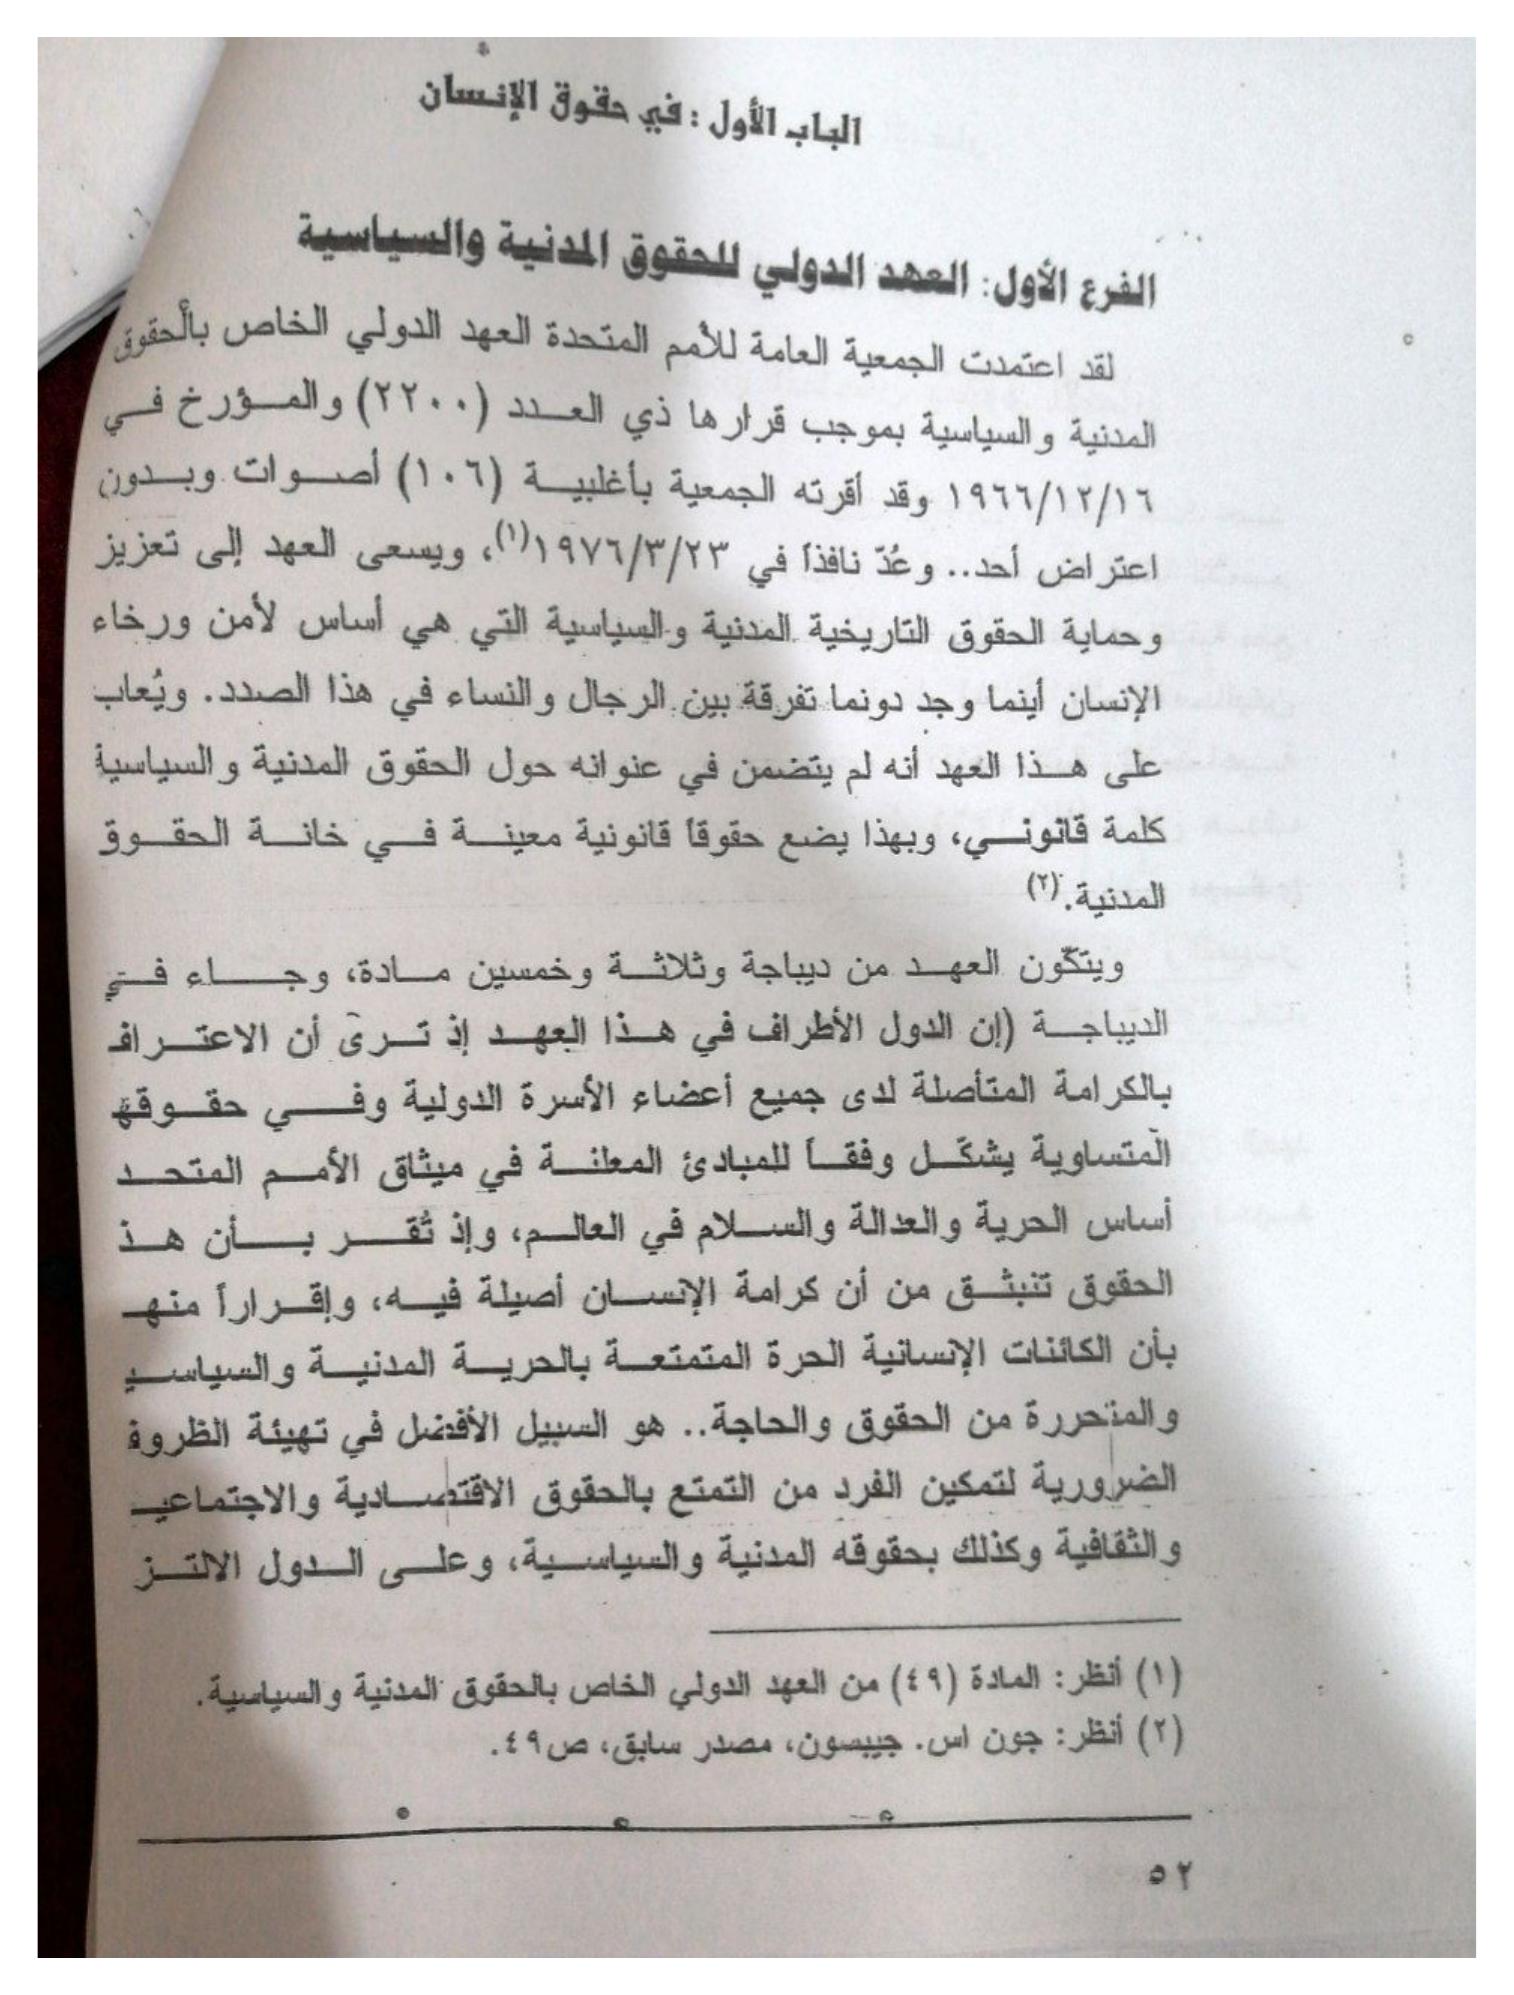 الباب الأول : في حقوق الإنسان
الفرع الأول: العهد الدولي للحقوق المدنية والسياسية
لقد اعتمدت الجمعية العامة للأمم المتحدة العهد الدولي الخاص بالحقوق
المدنية والسياسية بموجب قرارها ذي العدد (٢٢٠٠) والمؤرخ في
١٩٦٦/١٢/١٦ وقد أقرته الجمعية بأغلبية (١٠٦) أصوات وبدون
اعتراض أحد.. وعُدّ نافذاً في ١٩٧٦/٣/٢٣(١)، ويسعى العهد إلى تعزيز
وحماية الحقوق التاريخية المدنية والسياسية التي هي أساس لأمن ورخاء
الإنسان أينما وجد دونما تفرقة بين الرجال والنساء في هذا الصدد. ويُعاب
على هذا العهد أنه لم يتضمن في عنوانه حول الحقوق المدنية والسياسية
كلمة قانوني، وبهذا يضع حقوقاً قانونية معينة في خانة الحقوق
المدنية.(٢)
ويتكّون العهد من ديباجة وثلاثة وخمسين مادة، وجاء في
الديباجة (إن الدول الأطراف في هذا العهد إذ ترى أن الاعتراف
بالكرامة المتأصلة لدى جميع أعضاء الأسرة الدولية وفي حقوقه
المتساوية يشكّل وفقاً للمبادئ المعلنة في ميثاق الأمم المتحد
أساس الحرية والعدالة والسلام في العالم، وإذ تُقر بأن هذ
الحقوق تنبثق من أن كرامة الإنسان أصيلة فيه، وإقراراً منه
بأن الكائنات الإنسانية الحرة المتمتعة بالحرية المدنية والسياسي
والمتحررة من الحقوق والحاجة.. هو السبيل الأفضل في تهيئة الظروف
الضرورية لتمكين الفرد من التمتع بالحقوق الاقتصادية والاجتماعي
والثقافية وكذلك بحقوقه المدنية والسياسية، وعلى الدول الالتز
(١) أنظر: المادة (٤٩) من العهد الدولي الخاص بالحقوق المدنية والسياسية.
(٢) أنظر: جون اس. جيبسون، مصدر سابق، ص٤٩.
٥٢